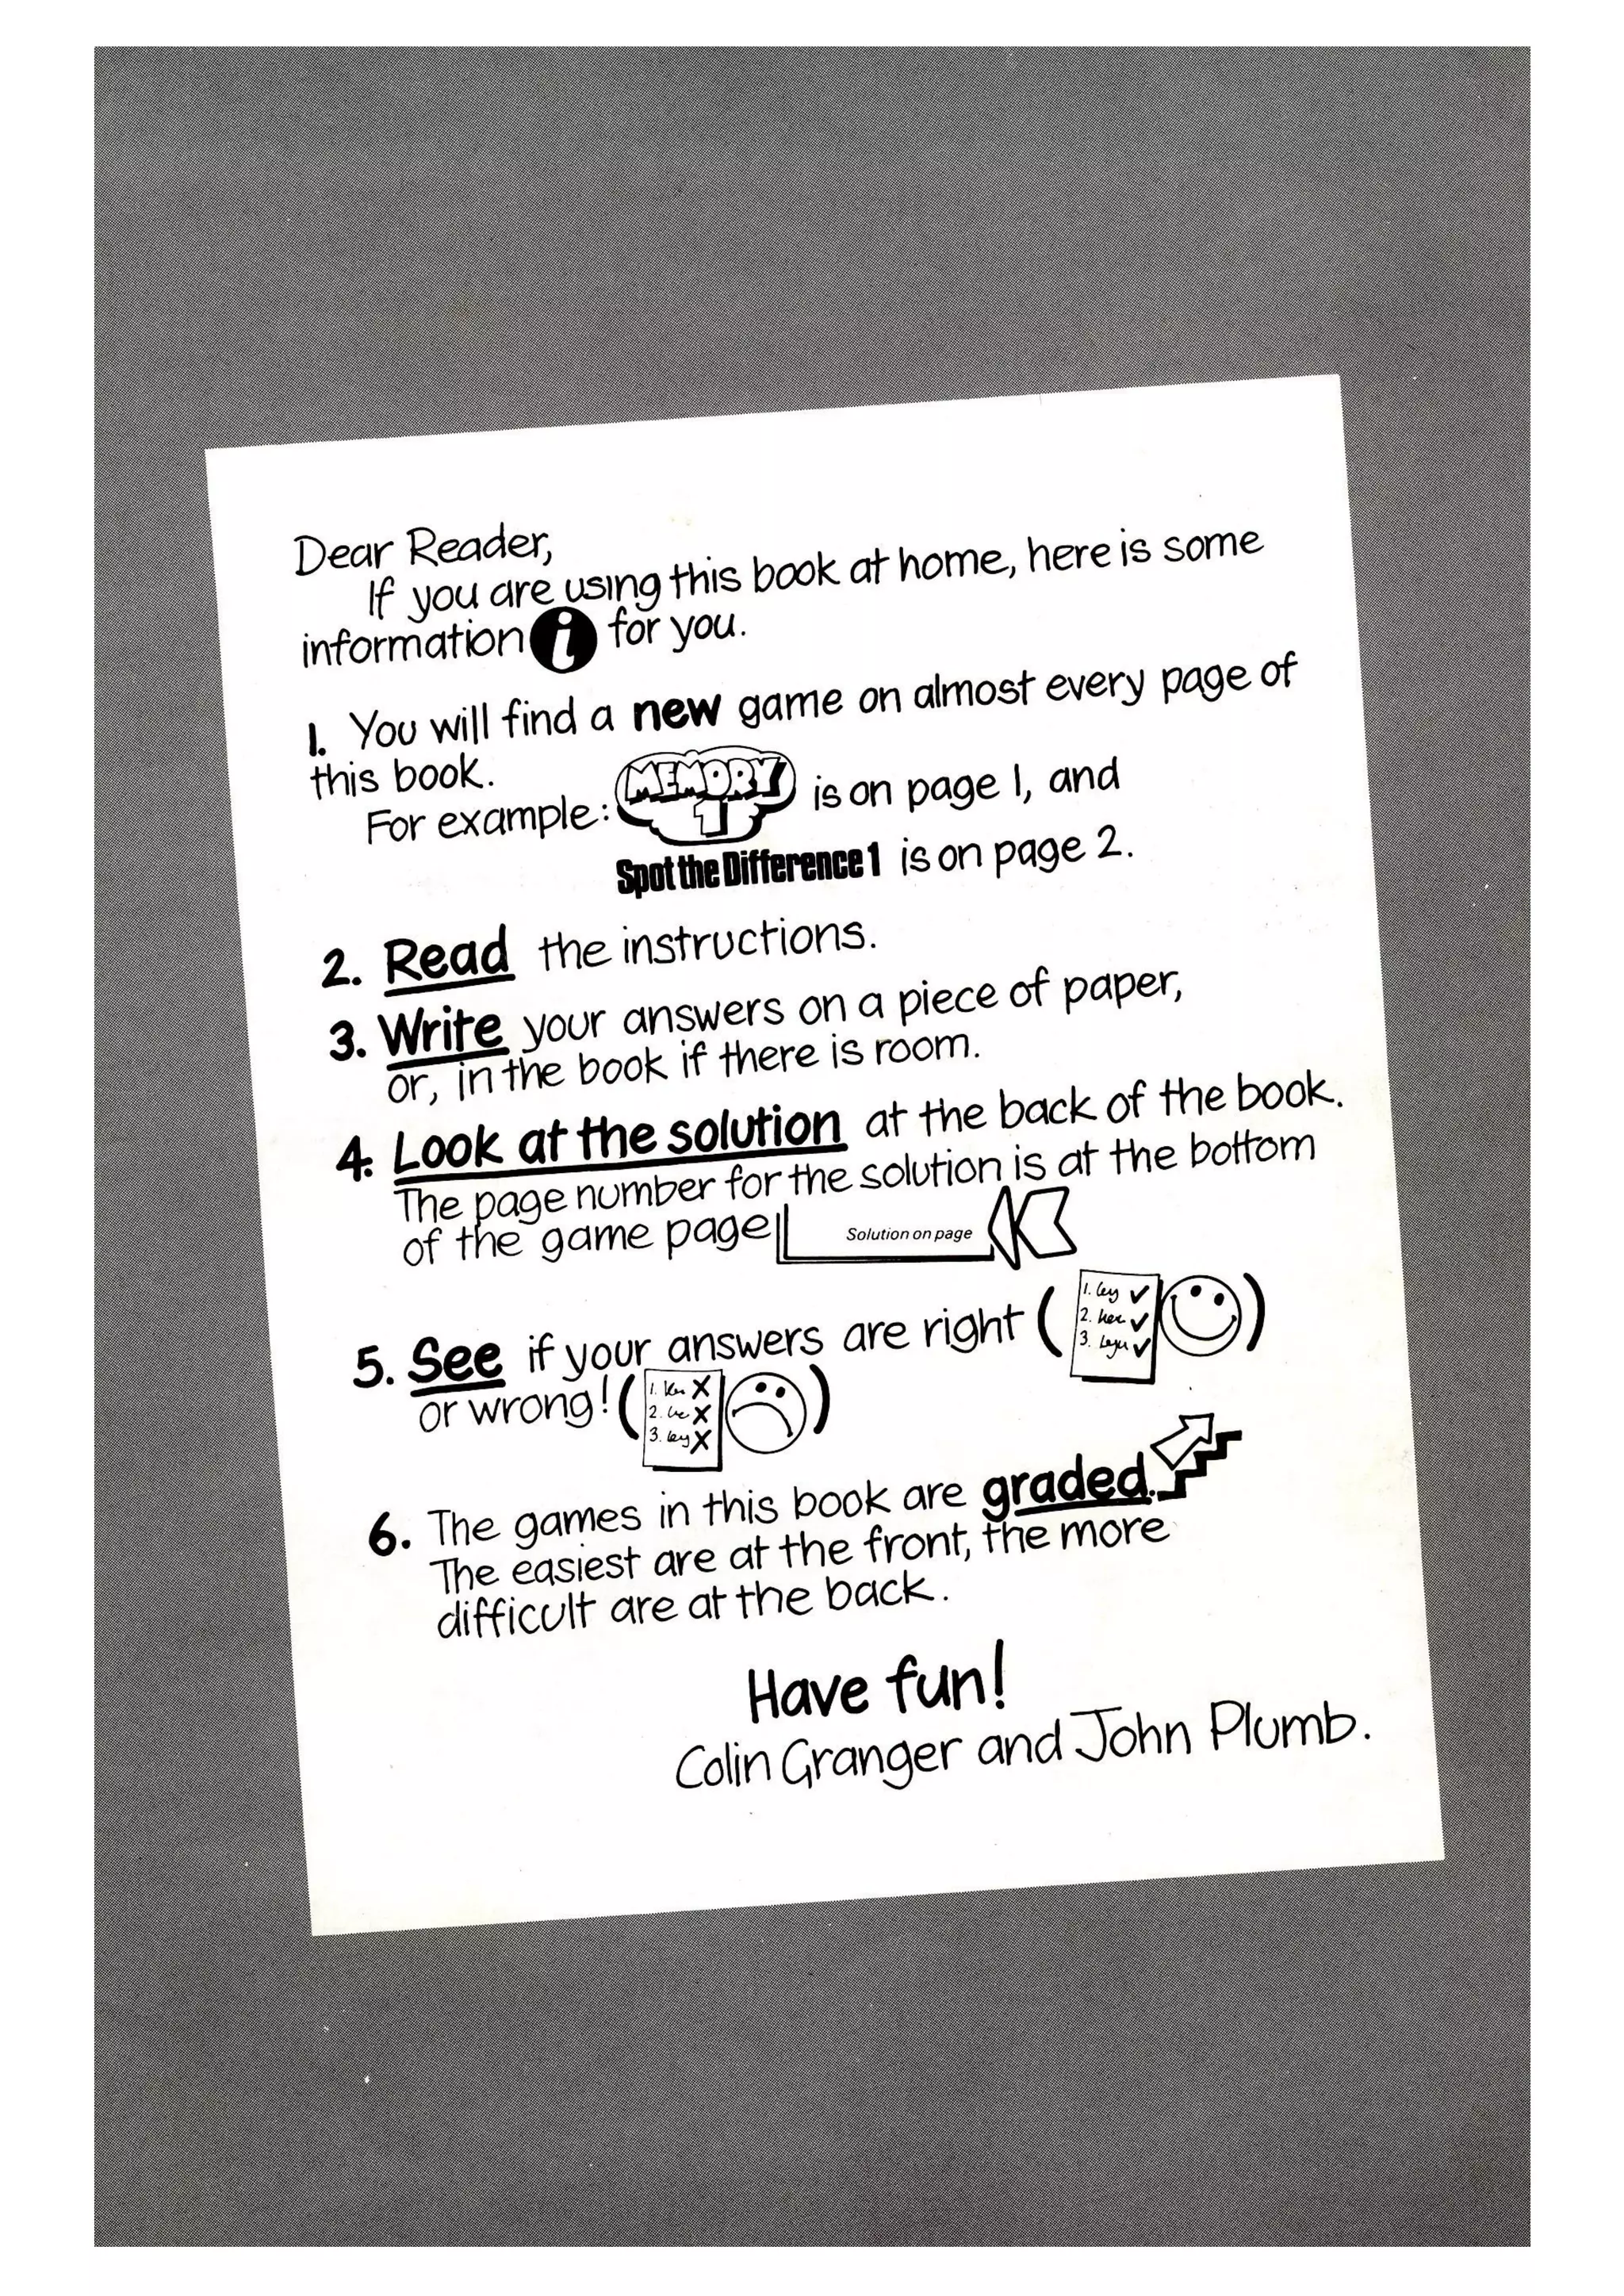 Dear Reader,
If you are using this book at home, here is some
information i for you.
1. You will find a new game on almost every page of
this book.
For example: MEMORY 1 is on page 1, and
Spot the Difference 1 is on page 2.
2. Read the instructions.
3. Write your answers on a piece of paper,
or, in the book if there is room.
4. Look at the solution at the back of the book.
The page number for the solution is at the bottom
of the game page Solution on page
5. See if your answers are right ( 1. ✓
2. ✓
3. ✓ )
or wrong! ( 1. X
2. X
3. X )
6. The games in this book are graded.
The easiest are at the front, the more
difficult are at the back.
Have fun!
Colin Granger and John Plumb.